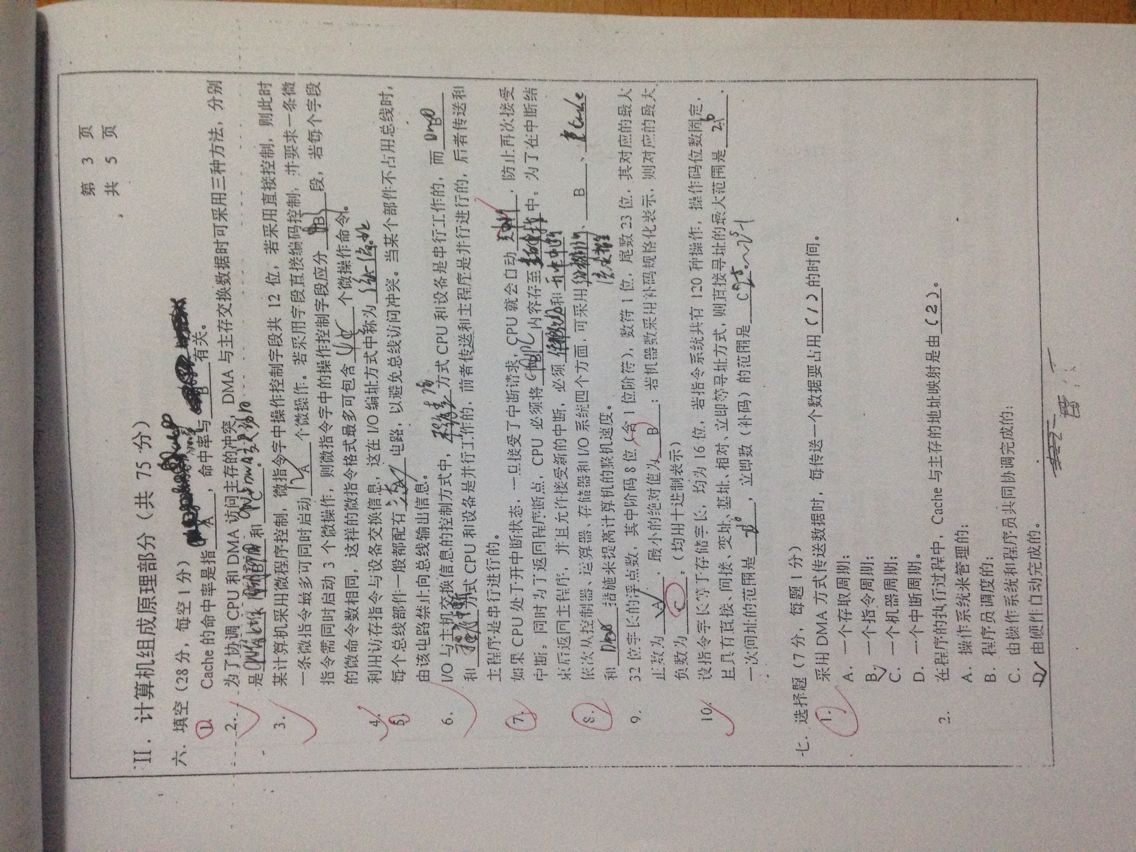 第 3 页
共 5 页
II．计算机组成原理部分（共 75 分）
六．填空（28分，每空1分）
1. Cache 的命中率是指 A ，命中率与 B 有关。
2. 为了协调 CPU 和 DMA 访问主存的冲突，DMA 与主存交换数据时可采用三种方法，分别
是 和 。
3. 某计算机采用微程序控制，微指令字中操作控制字段共 12 位，若采用直接控制，则此时
一条微指令最多可同时启动 A 个微操作。若采用字段直接编码控制，并要求一条微
指令需同时启动 3 个微操作，则微指令字中的操作控制字段应分 B 段，若每个字段
的微命令数相同，这样的微指令格式最多可包含 C 个微操作命令。
4. 利用访存指令与设备交换信息，这在 I/O 编址方式中称为
5. 每个总线部件一般都配有 电路，以避免总线访问冲突。当某个部件不占用总线时，
由该电路禁止向总线输出信息。
6. I/O 与主机交换信息的控制方式中， 方式 CPU 和设备是串行工作的，而
和 方式 CPU 和设备是并行工作的，前者传送和主程序是并行进行的，后者传送和
主程序是串行进行的。
7. 如果 CPU 处于开中断状态，一旦接受了中断请求，CPU 就会自动 ，防止再次接受
中断。同时为了返回程序断点，CPU 必须将 内容存至 中。为了在中断结
束后返回主程序，并且允许接受新的中断，必须 和
8. 依次从控制器、运算器、存储器和 I/O 系统四个方面，可采用 、 B 、
和 措施来提高计算机的整机速度。
9. 32 位字长的浮点数，其中阶码 8 位（含 1 位阶符），数符 1 位，尾数 23 位，其对应的最大
正数为 A ，最小的绝对值为 B ；若机器数采用补码规格化表示，则对应的最大
负数为 C 。（均用十进制表示）
10. 设指令字长等于存储字长，均为 16 位，若指令系统共有 120 种操作，操作码位数固定，
且具有直接、间接、变址、基址、相对、立即等寻址方式，则直接寻址的最大范围是 ，
一次间址的范围是 ，立即数（补码）的范围是 C 。
七．选择题（7 分，每题 1 分）
1. 采用 DMA 方式传送数据时，每传送一个数据要占用 (1) 的时间。
A．一个存取周期；
B．一个指令周期；
C．一个机器周期；
D．一个中断周期。
2. 在程序的执行过程中，Cache 与主存的地址映射是由 (2)。
A．操作系统来管理的；
B．程序员调度的；
C．由操作系统和程序员共同协调完成的；
D．由硬件自动完成的。